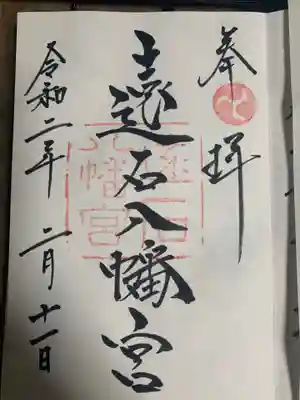 奉拝
遠石八幡宮
遠石
八幡宮
令和二年二月十一日